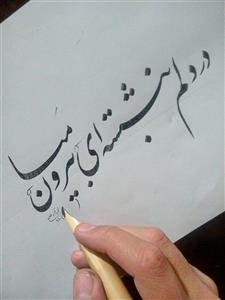 در دلم بنشسته‌ای بیرون میا